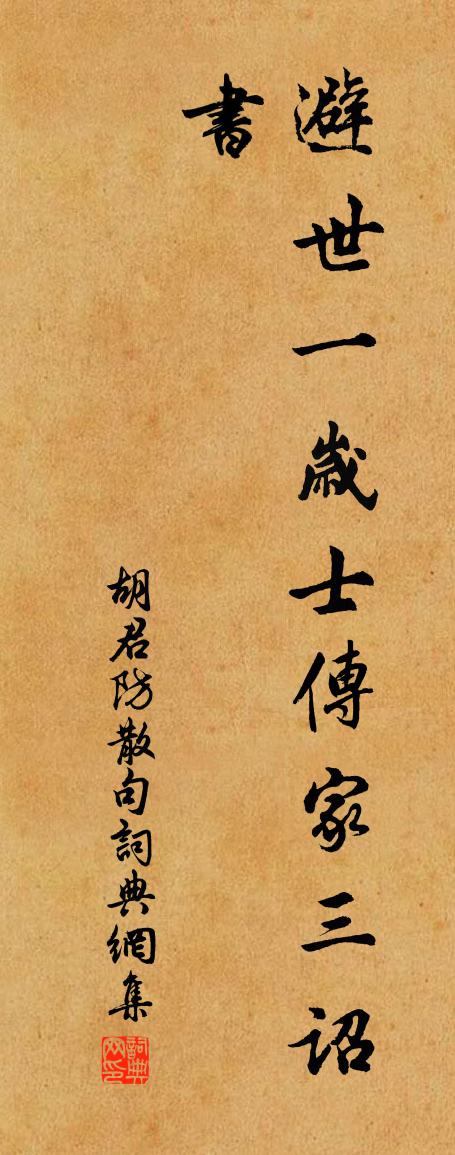 避世一歲士傳家三詔
書
胡君防散句詞典網集
詞典
网印